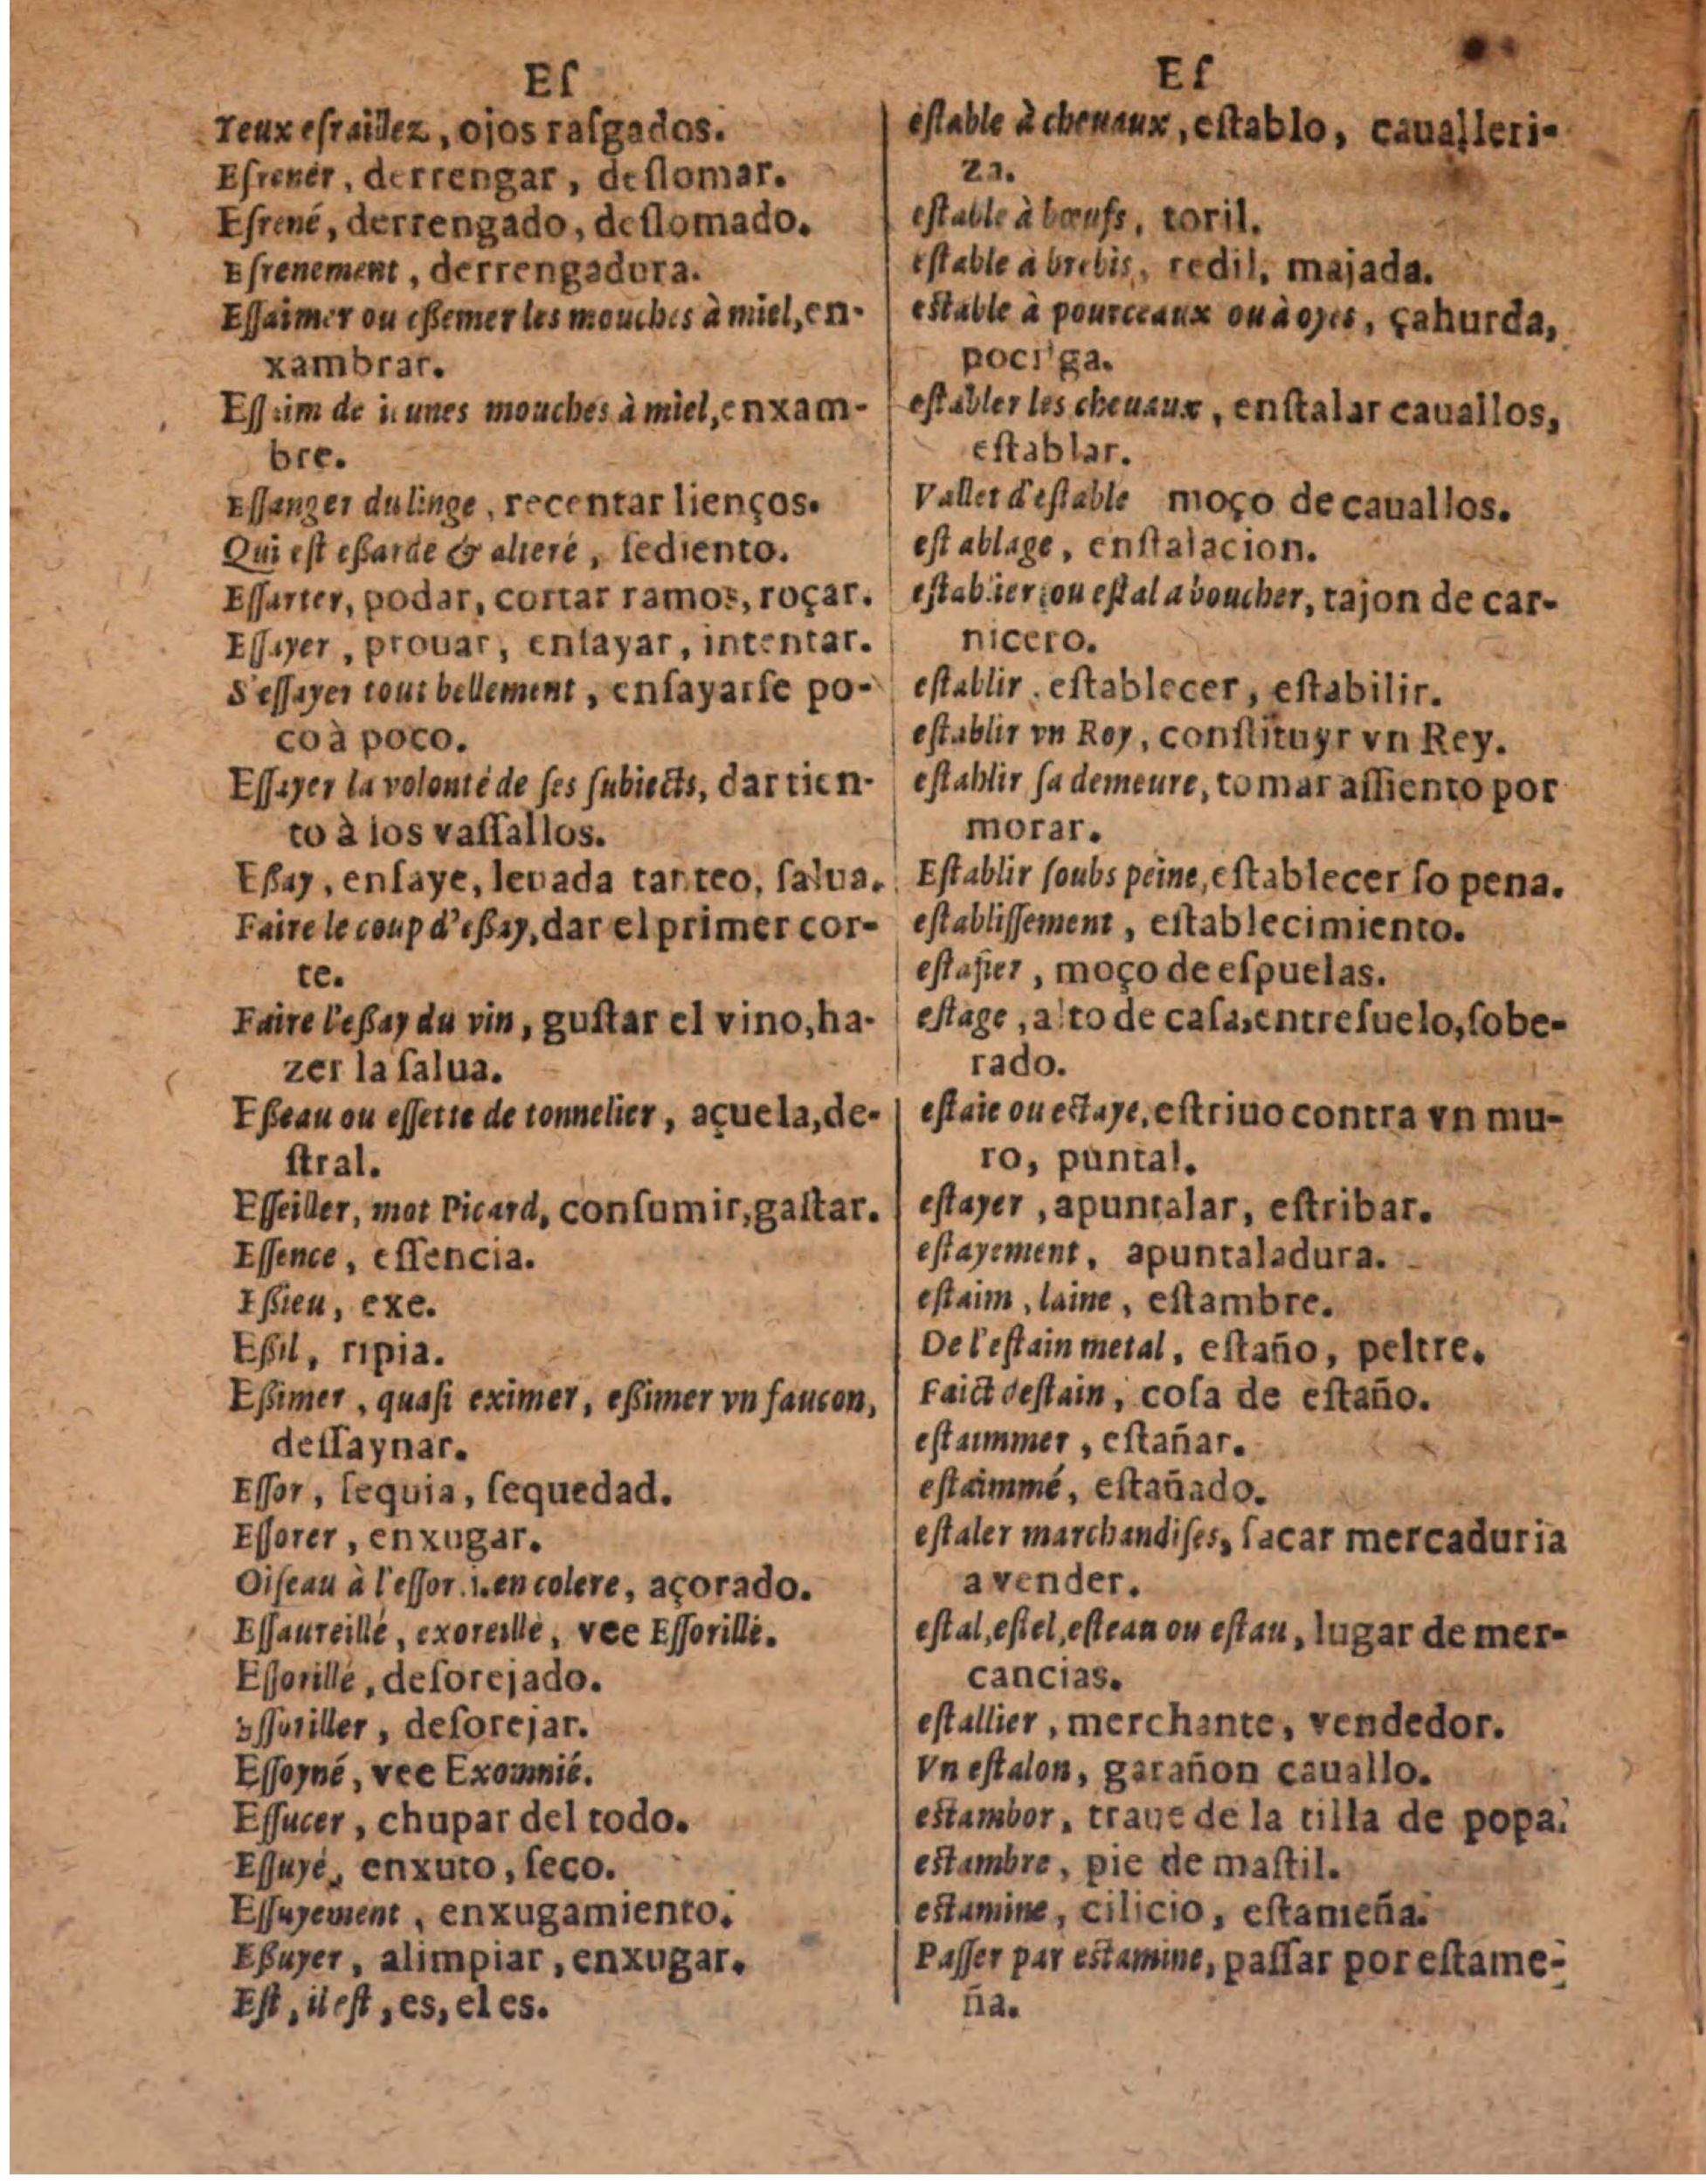 Eſ
Yeux eſraillez, ojos raſgados.
Eſrener, derrengar, deſlomar.
Eſrené, derrengado, deſlomado.
Eſrenement, derrengadura.
Eſſaimer ou eßemer les mouches à miel, en-
xambrar.
Eſſaim de ieunes mouches à miel, enxam-
bre.
Eſſanger du linge, recentar lienços.
Qui eſt eßardé & alteré, ſediento.
Eſſarter, podar, cortar ramos, roçar.
Eſſayer, prouar, enſayar, intentar.
S'eſſayer tout bellement, enſayarſe po-
co à poco.
Eſſayer la volonté de ſes ſubiects, dar tien-
to à los vaſſallos.
Eßay, enſaye, leuada tanteo, ſalua.
Faire le coup d'eßay, dar el primer cor-
te.
Faire l'eßay du vin, guſtar el vino, ha-
zer la ſalua.
Eßeau ou eſſette de tonnelier, açuela, de-
ſtral.
Eſſeiller, mot Picard, conſumir, gaſtar.
Eſſence, eſſencia.
Eßieu, exe.
Eßil, ripia.
Eßimer, quaſi eximer, eßimer vn faucon,
deſſaynar.
Eſſor, ſequia, ſequedad.
Eſſorer, enxugar.
Oiſeau à l'eſſor .i. en colere, açorado.
Eſſaureillé, exoreillé, vee Eſſorillé.
Eſſorillé, deſorejado.
Eſſoriller, deſorejar.
Eſſoyné, vee Exoinnié.
Eſſucer, chupar del todo.
Eſſuyé, enxuto, ſeco.
Eſſuyement, enxugamiento.
Eßuyer, alimpiar, enxugar.
Eſt, il eſt, es, el es.
Eſ
eſtable à cheuaux, eſtablo, cauалleri-
za.
eſtable à bœufs, toril.
eſtable à brebis, redil, majada.
eſtable à pourceaux ou à oyes, çahurda,
pocilga.
eſtabler les cheuaux, enſtalar cauallos,
eſtablar.
Vallet d'eſtable moço de cauallos.
eſtablage, enſtalacion.
eſtablier, ou eſtal a boucher, tajon de car-
nicero.
eſtablir, eſtablecer, eſtabilir.
eſtablir vn Roy, conſtituyr vn Rey.
eſtablir ſa demeure, tomar aſſiento por
morar.
Eſtablir ſoubs peine, eſtablecer ſo pena.
eſtabliſſement, eſtablecimiento.
eſtafier, moço de eſpuelas.
eſtage, alto de caſa, entreſuelo, ſobe-
rado.
eſtaie ou eſtaye, eſtriuo contra vn mu-
ro, puntal.
eſtayer, apuntalar, eſtribar.
eſtayement, apuntaladura.
eſtaim, laine, eſtambre.
De l'eſtain metal, eſtaño, peltre.
Faict deſtain, coſa de eſtaño.
eſtaimmer, eſtañar.
eſtaimmé, eſtañado.
eſtaler marchandiſes, ſacar mercaduria
a vender.
eſtal, eſtel, eſteau ou eſtau, lugar de mer-
cancias.
eſtallier, merchante, vendedor.
Vn eſtalon, garañon cauallo.
eſtambor, traue de la tilla de popa.
eſtambre, pie de maſtil.
eſtamine, cilicio, eſtameña.
Paſſer par eſtamine, paſſar por eſtame-
ña.